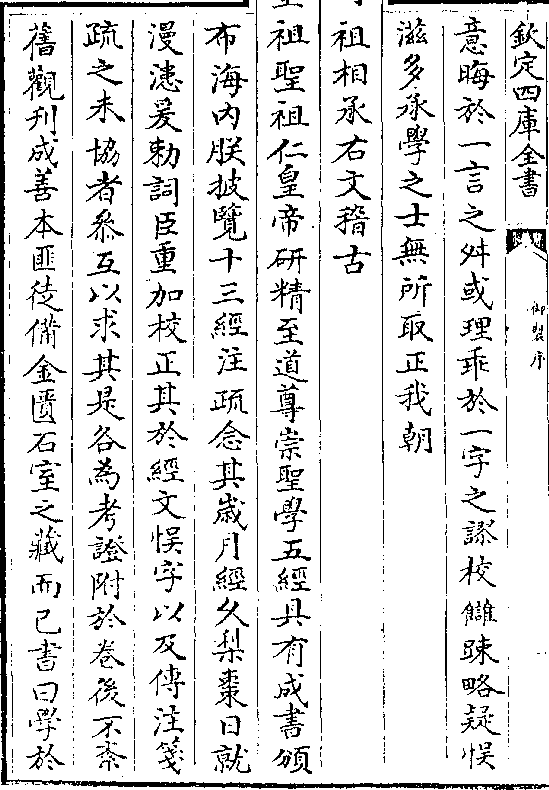 欽定四庫全書
御製序
意晦於一言之舛或理乖於一字之謬校讎踈略疑悮
滋多承學之士無所取正我朝
祖相承右文稽古
祖聖祖仁皇帝研精至道尊崇聖學五經具有成書頒
布海内朕披覽十三經注疏念其歲月經久梨棗日就
漫漶爰勅詞臣重加校正其於經文悮字以及傳注箋
疏之未協者叅互以求其是各為考證附於卷後不紊
舊觀刋成善本匪徒備金匱石室之藏而已書曰學於